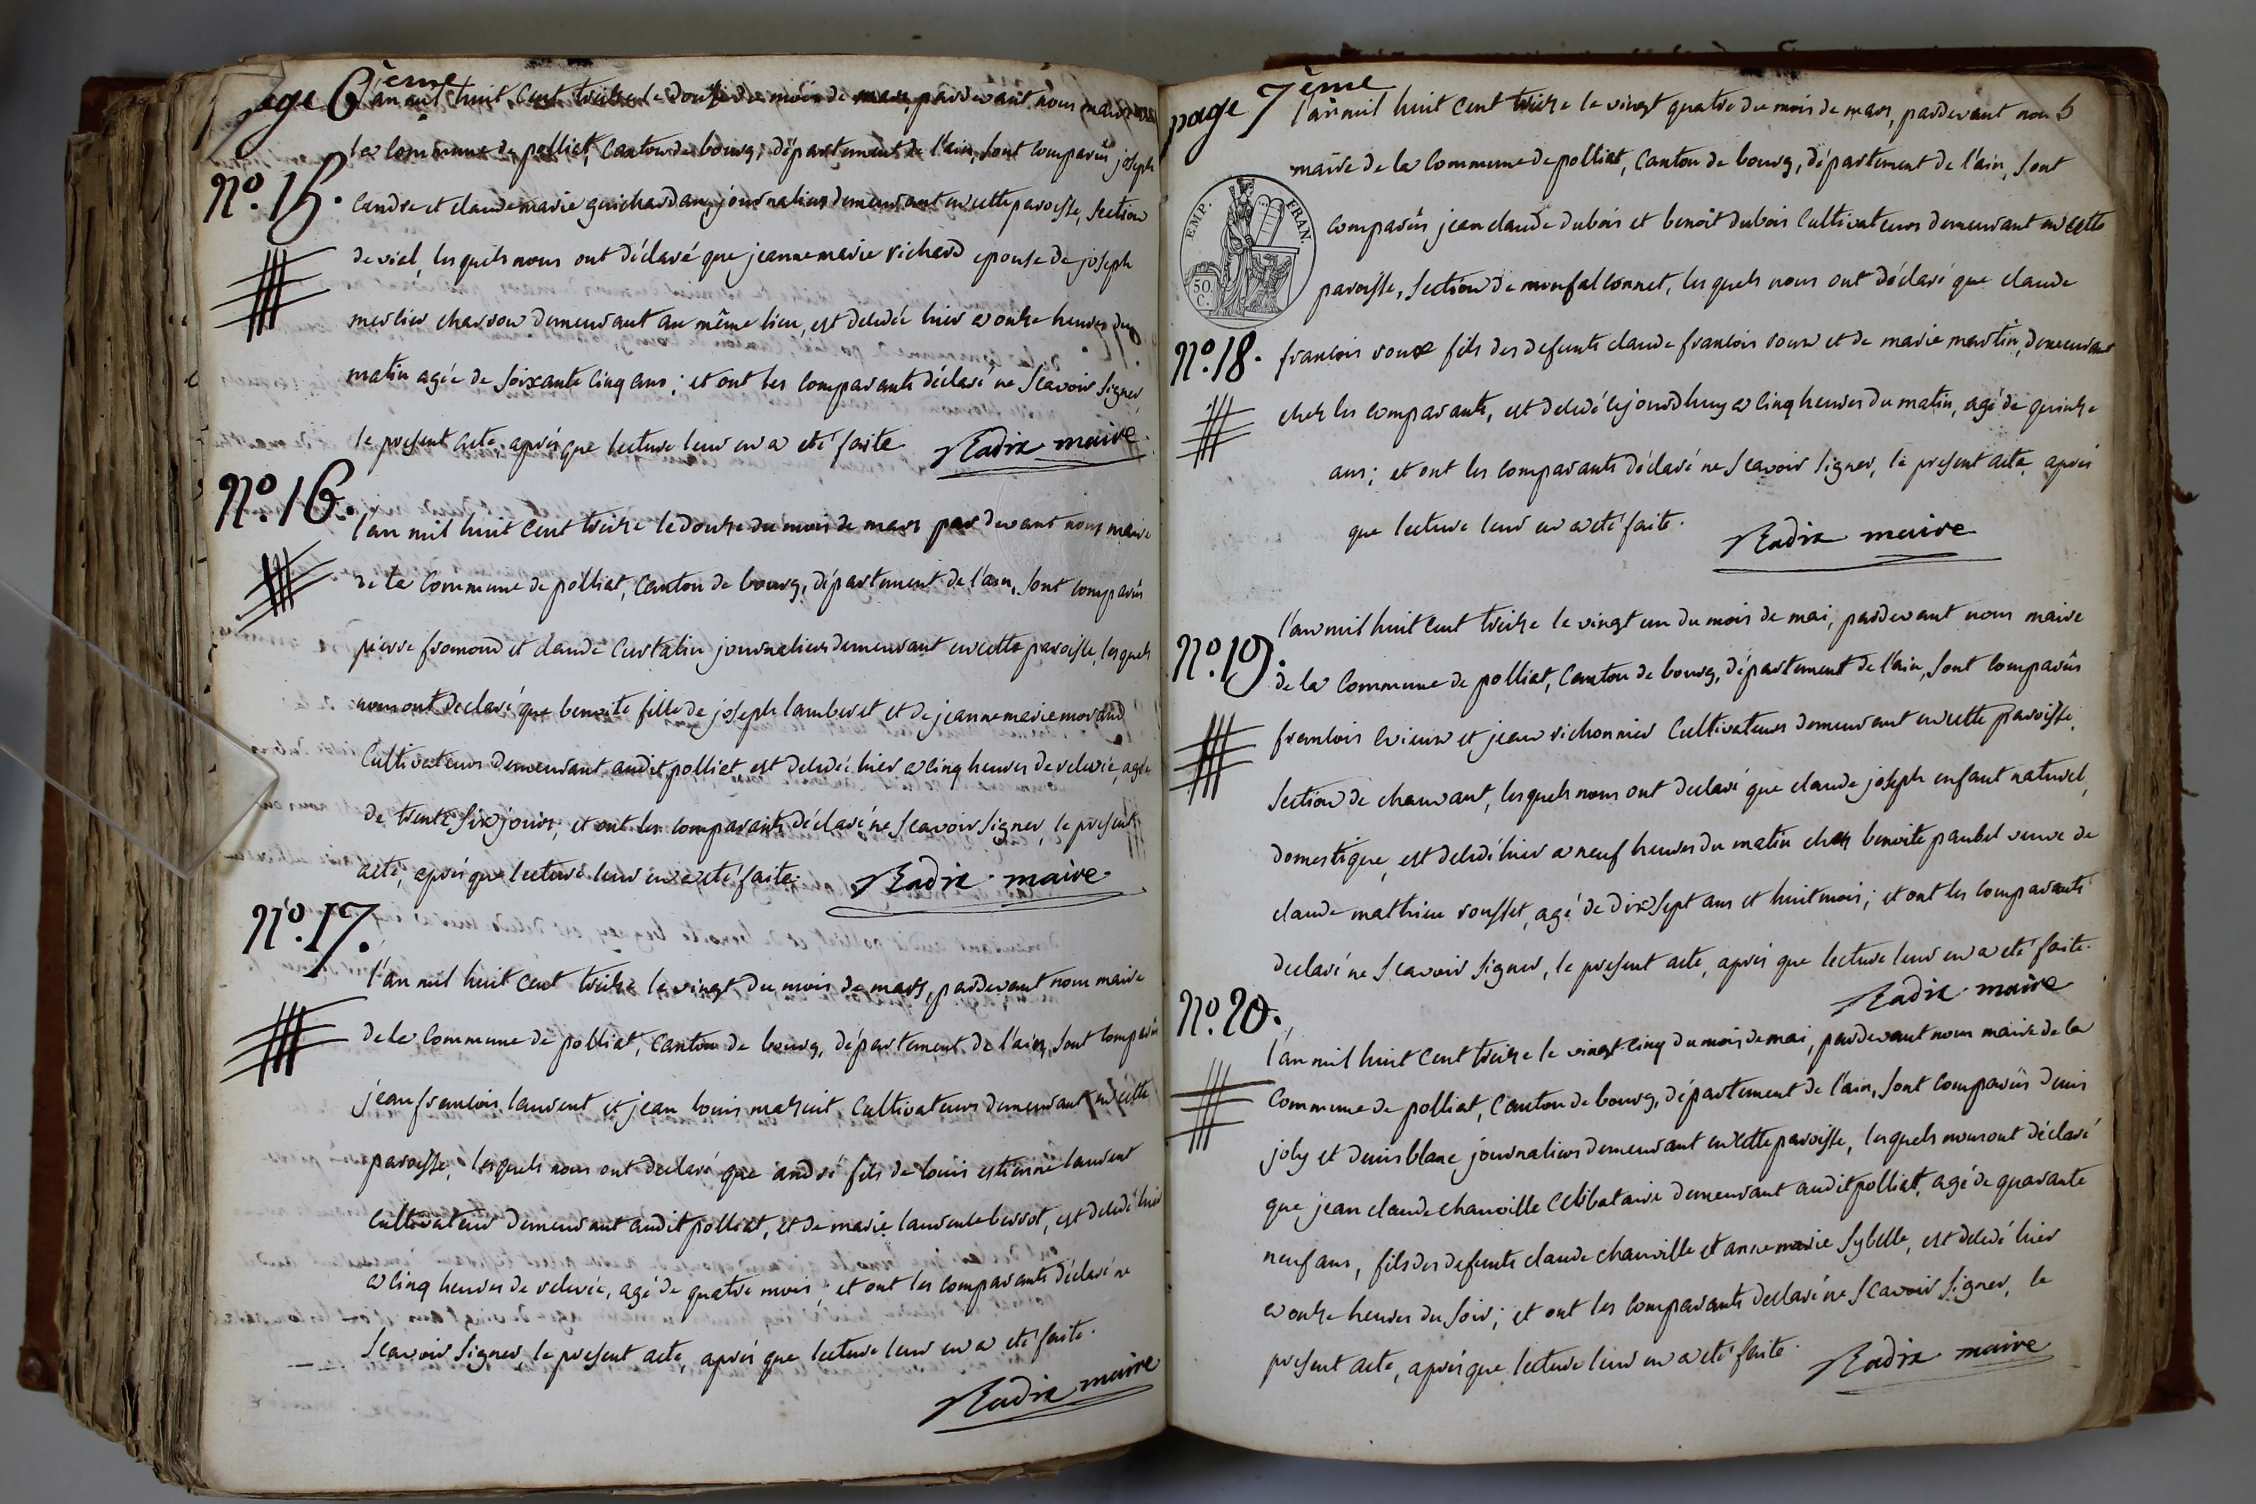 page 6ème
l'an mil huit Cent treize le douze du mois de mars, pardevant nous maire de
la Commune de polliat, Canton de bourg, département de l'ain, sont comparûs joseph
No. 15.
Candre et claude marie guichardan, journaliers demeurant en cette paroisse, section
de viel, lesquels nous ont déclaré que jeanne marie richard epouse de joseph
merlier charron demeurant au même lieu, est deledée hier a onze heures du
matin agée de soixante cinq ans; et ont les comparants déclaré ne scavoir signer
le present acte, après que lecture leur en a eté faite Radix maire
No. 16.
l'an mil huit Cent treize le douze du mois de mars par devant nous maire
de la Commune de polliat, Canton de bourg, département de l'ain, sont comparûs
pierre fromond et claude Curtalin journaliers demeurant en cette paroisse, lesquels
nous ont declaré que benoite fille de joseph lamberet et de jeanne marie morand
Cultivateurs demeurant audit polliat, est deledée hier a cinq heures de relevée, agée
de trente six jours, et ont les comparants déclaré ne scavoir signer, le present
acte, après que lecture leur en a eté faite. Radix maire
No. 17.
l'an mil huit Cent treize le vingt du mois de mars, pardevant nous maire
de la Commune de polliat, Canton de bourg, département de l'ain, sont comparûs
jean francois laurent et jean louis mazuit Cultivateurs demeurant en cette
paroisse, lesquels nous ont declaré que andré fils de louis estienne laurent
Cultivateur demeurant audit polliat, et de marie laurence bessot, est deledé hier
a cinq heures de relevée, agé de quatre mois; et ont les comparants déclaré ne
scavoir signer, le present acte, après que lecture leur en a eté faite.
Radix maire
page 7ème
l'an mil huit Cent treize le vingt quatre du mois de mars, pardevant nous
maire de la Commune de polliat, Canton de bourg, département de l'ain, sont
EMP. FRAN.
50 C.
comparûs jean claude dubois et benoît dubois Cultivateurs demeurant en cette
paroisse, section de monfalconnet, lesquels nous ont déclaré que claude
No. 18.
francois roux fils des defunts claude francois roux et de marie martin, demeurant
chez les comparants, est deledé cejourdhuy a cinq heures du matin, agé de quinze
ans; et ont les comparants déclaré ne scavoir signer, le present acte, après
que lecture leur en a eté faite. Radix maire
l'an mil huit cent treize le vingt un du mois de mai, pardevant nous maire
No. 19.
de la Commune de polliat, Canton de bourg, département de l'ain, sont comparûs
francois evieux et jean richonnier Cultivateurs demeurant en cette paroisse,
section de chanvant, lesquels nous ont declaré que claude joseph enfant naturel,
domestique, est deledé hier a neuf heures du matin chez benoite paubel veuve de
claude mathieu rousset, agé de dix sept ans et huit mois; et ont les comparants
declaré ne scavoir signer, le present acte, après que lecture leur en a eté faite.
Radix maire
No. 20.
l'an mil huit Cent treize le vingt cinq du mois de mai, pardevant nous maire de la
Commune de polliat, Canton de bourg, département de l'ain, sont comparûs denis
joly et denis blanc journaliers demeurant en cette paroisse, lesquels nous ont déclaré
que jean claude chanville Célibataire demeurant audit polliat, agé de quarante
neuf ans, fils des defunts claude chanville et anne marie Sybelle, est deledé hier
a onze heures du soir; et ont les comparants declaré ne scavoir signer, le
present acte, après que lecture leur en a eté faite. Radix maire